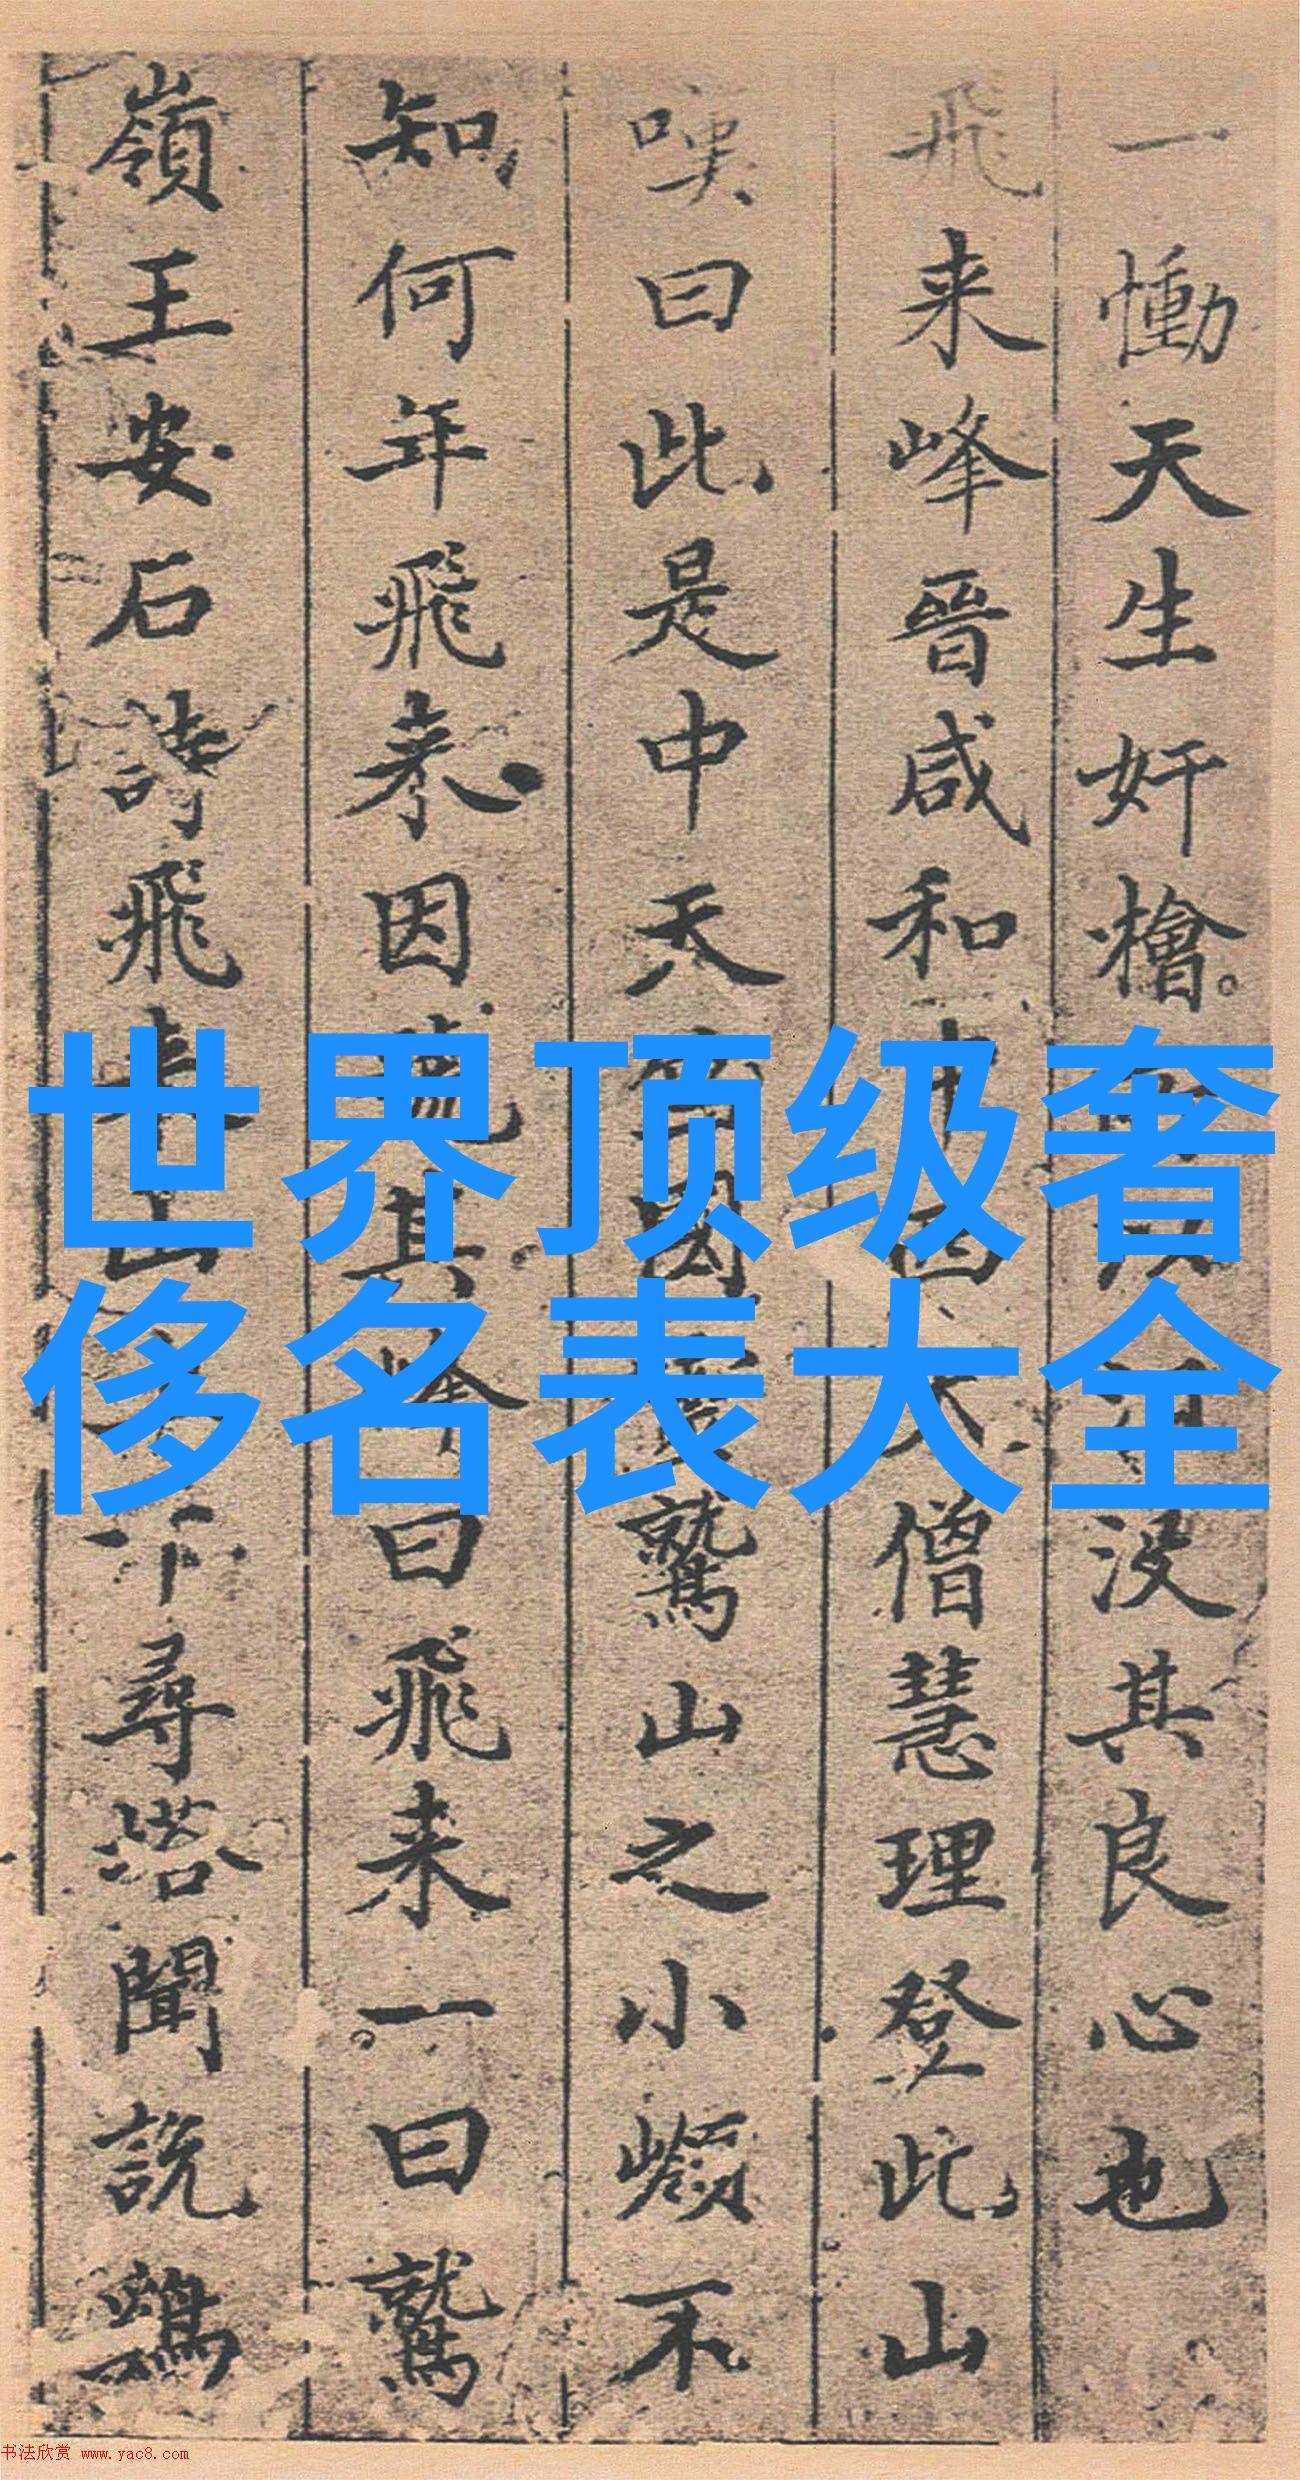 一慟天生奸檜。沒其良心也
飛来峰晉咸和中西天僧慧理登此山
嘆曰此是中天竺國靈鷲山之小嶺不
知何年飛来因號其峰曰飛来一曰鷲
嶺王安石詩飛来山上千尋塔聞說鷄
世界顶级奢
侈名表大全
书法欣赏 www.yac8.com